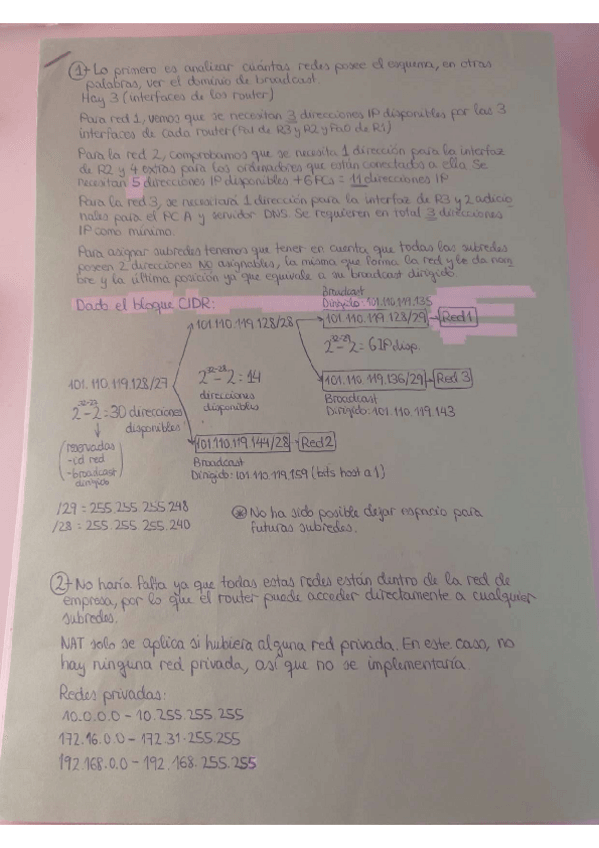 1 Lo primero es analizar cuántas redes posee el esquema, en otras
palabras, ver el dominio de broadcast.
Hay 3 (interfaces de los router)
Para red 1, vemos que se necesitan 3 direcciones IP disponibles por las 3
interfaces de cada router (Pa1 de R3 y R2 y Pa0 de R1)
Para la red 2, comprobamos que se necesita 1 dirección para la interfaz
de R2 y 4 extras para los ordenadores que están conectados a ella. Se
necesitan 5 direcciones IP disponibles + 6 PCs = 11 direcciones IP
Para la red 3, se necesitará 1 dirección para la interfaz de R3 y 2 adicio
nales para el PC A y servidor DNS. Se requieren en total 3 direcciones
IP como mínimo.
Para asignar subredes tenemos que tener en cuenta que todas las subredes
poseen 2 direcciones NO asignables, la misma que forma la red y le da nom
bre y la última posición ya que equivale a su broadcast dirigido.
Dado el bloque CIDR:
Broadcast
Dirigido: 101.110.119.135
101.110.119.128/28
101.110.119.128/29 → Red 1
2^32-29 - 2 = 6 IP disp.
101.110.119.128/27
2^32-28 - 2 = 14
direcciones
disponibles
101.110.119.136/29 → Red 3
Broadcast
Dirigido: 101.110.119.143
2^32-27 - 2 = 30 direcciones
disponibles
reservadas
-id red
-broadcast
dirigido
101.110.119.144/28 → Red 2
Broadcast
Dirigido: 101.110.119.159 (bits host a 1)
/29 = 255.255.255.248
/28 = 255.255.255.240
* No ha sido posible dejar espacio para
futuras subredes.
2 No haría falta ya que todas estas redes están dentro de la red de
empresa, por lo que el router puede acceder directamente a cualquier
subredes.
NAT solo se aplica si hubiera alguna red privada. En este caso, no
hay ninguna red privada, así que no se implementaría.
Redes privadas:
10.0.0.0 - 10.255.255.255
172.16.0.0 - 172.31.255.255
192.168.0.0 - 192.168.255.255